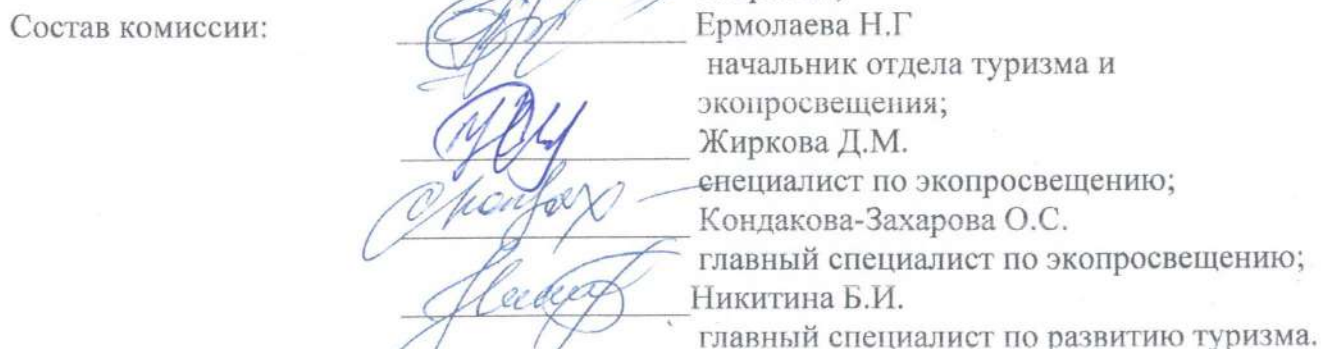 Состав комиссии: Ермолаева Н.Г
начальник отдела туризма и
экопросвещения;
Жиркова Д.М.
специалист по экопросвещению;
Кондакова-Захарова О.С.
главный специалист по экопросвещению;
Никитина Б.И.
главный специалист по развитию туризма.